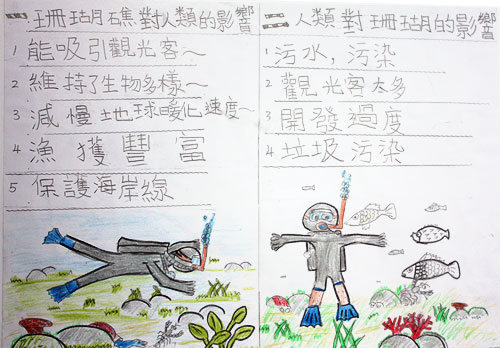 一 珊瑚礁對人類的影響
1 能吸引觀光客~
2 維持了生物多樣~
3 減慢地球暖化速度~
4 漁獲豐富
5 保護海岸線
二 人類對珊瑚的影響
1 污水,污染
2 觀光客太多
3 開發過度
4 垃圾污染